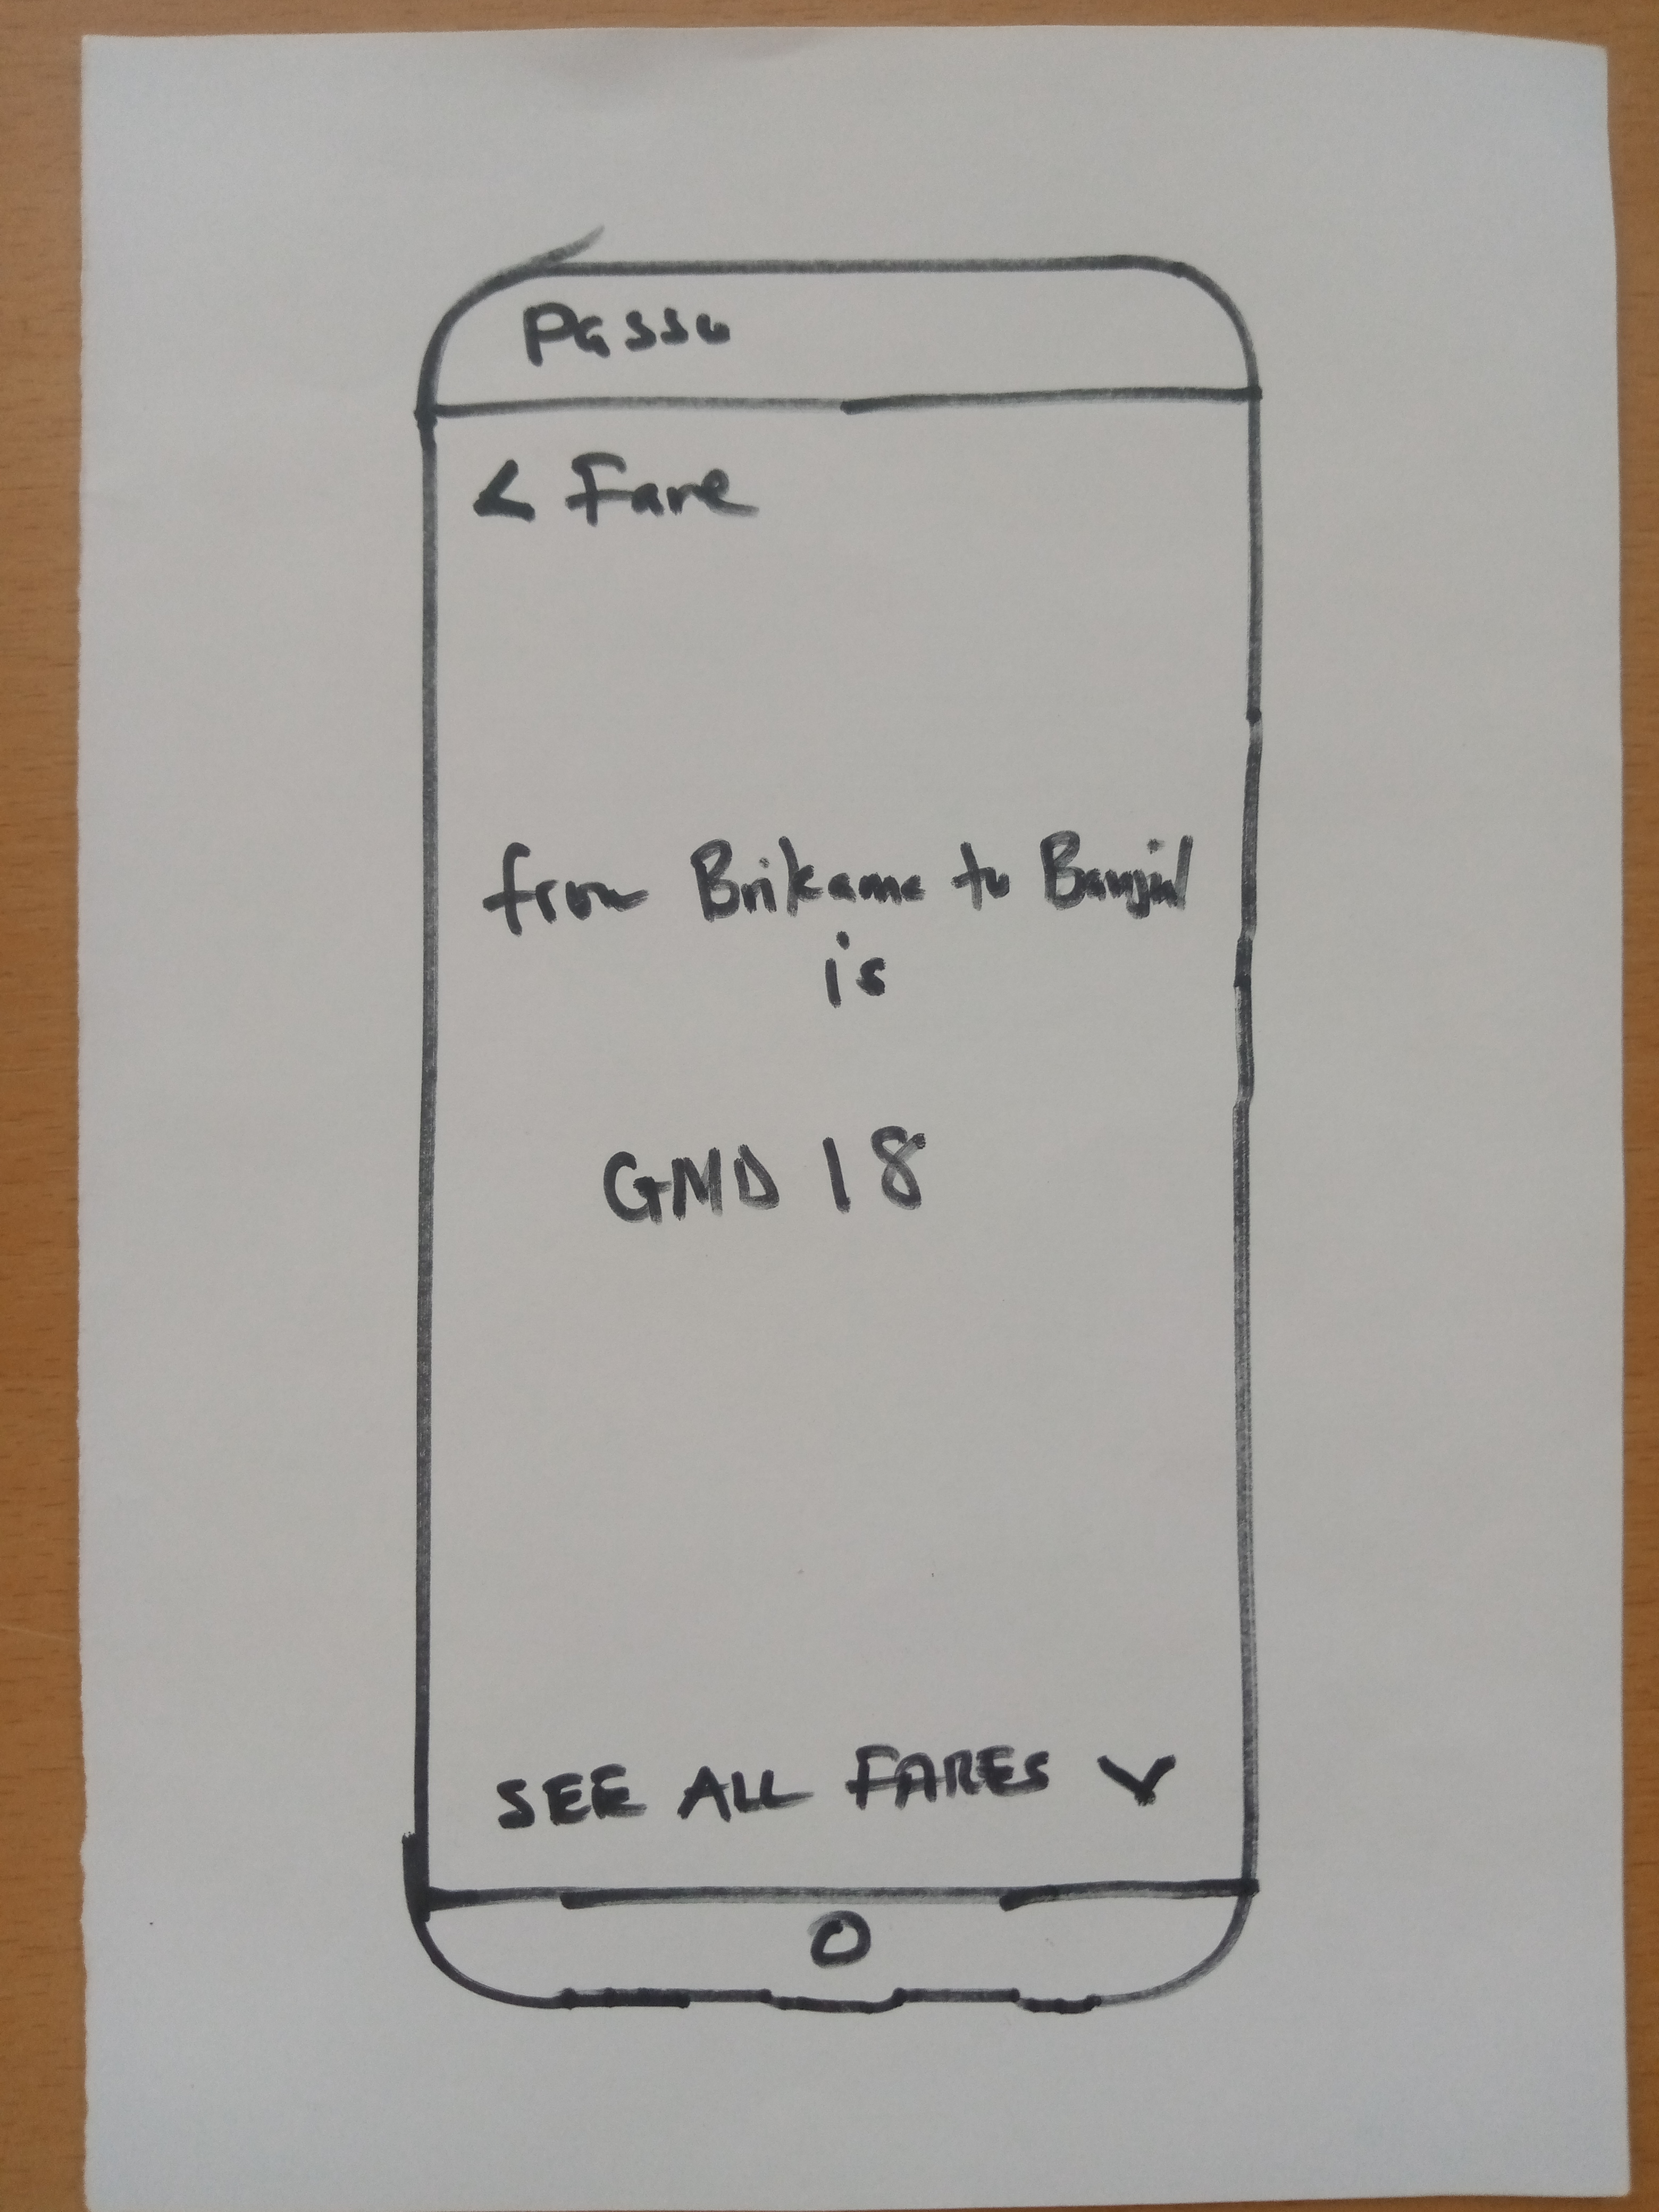 Passo
< Fare
from Brikama to Banjul
is
GMD 18
SEE ALL FARES V